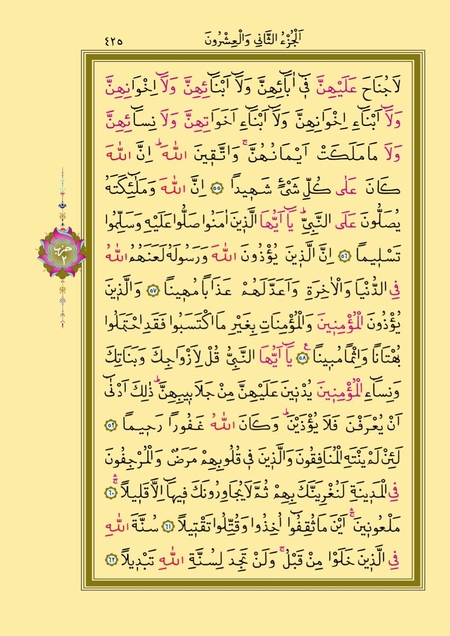 اَلْجُزْءُ الثَّانِي وَالْعِشْرُونَ ٤٢٥
لَا جُنَاحَ عَلَيْهِنَّ فٖٓي اٰبَٓائِهِنَّ وَلَٓا اَبْنَٓائِهِنَّ وَلَٓا اِخْوَانِهِنَّ
وَلَٓا اَبْنَٓاءِ اِخْوَانِهِنَّ وَلَٓا اَبْنَٓاءِ اَخَوَاتِهِنَّ وَلَا نِسَٓائِهِنَّ
وَلَا مَا مَلَكَتْ اَيْمَانُهُنَّۚ وَاتَّقٖينَ اللّٰهَۜ اِنَّ اللّٰهَ
كَانَ عَلٰى كُلِّ شَيْءٍ شَهٖيدًا ﴿٥٥﴾ اِنَّ اللّٰهَ وَمَلٰٓئِكَتَهُ
يُصَلُّونَ عَلَى النَّبِيِّۜ يَٓا اَيُّهَا الَّذٖينَ اٰمَنُوا صَلُّوا عَلَيْهِ وَسَلِّمُوا
تَسْلٖيمًا ﴿٥٦﴾ اِنَّ الَّذٖينَ يُؤْذُونَ اللّٰهَ وَرَسُولَهُ لَعَنَهُمُ اللّٰهُ
فِي الدُّنْيَا وَالْاٰخِرَةِ وَاَعَدَّ لَهُمْ عَذَابًا مُهٖينًا ﴿٥٧﴾ وَالَّذٖينَ
يُؤْذُونَ الْمُؤْمِنٖينَ وَالْمُؤْمِنَاتِ بِغَيْرِ مَا اكْتَسَبُوا فَقَدِ احْتَمَلُوا
بُهْتَانًا وَاِثْمًا مُبٖينًا۟ ﴿٥٨﴾ يَٓا اَيُّهَا النَّبِيُّ قُلْ لِاَزْوَاجِكَ وَبَنَاتِكَ
وَنِسَٓاءِ الْمُؤْمِنٖينَ يُدْنٖينَ عَلَيْهِنَّ مِنْ جَلَابٖيبِهِنَّۜ ذٰلِكَ اَدْنٰٓى
اَنْ يُعْرَفْنَ فَلَا يُؤْذَيْنَۜ وَكَانَ اللّٰهُ غَفُورًا رَحٖيمًا ﴿٥٩﴾
لَئِنْ لَمْ يَنْتَهِ الْمُنَافِقُونَ وَالَّذٖينَ فٖي قُلُوبِهِمْ مَرَضٌ وَالْمُرْجِفُونَ
فِي الْمَدٖينَةِ لَنُغْرِيَنَّكَ بِهِمْ ثُمَّ لَا يُجَاوِرُونَكَ فٖيهَٓا اِلَّا قَلٖيلًاۚ ﴿٦٠﴾
مَلْعُونٖينَۚ اَيْنَ مَا ثُقِفُٓوا اُخِذُوا وَقُتِّلُوا تَقْتٖيلًا ﴿٦١﴾ سُنَّةَ اللّٰهِ
فِي الَّذٖينَ خَلَوْا مِنْ قَبْلُۚ وَلَنْ تَجِدَ لِسُنَّةِ اللّٰهِ تَبْدٖيلًا ﴿٦٢﴾
حزب
٢